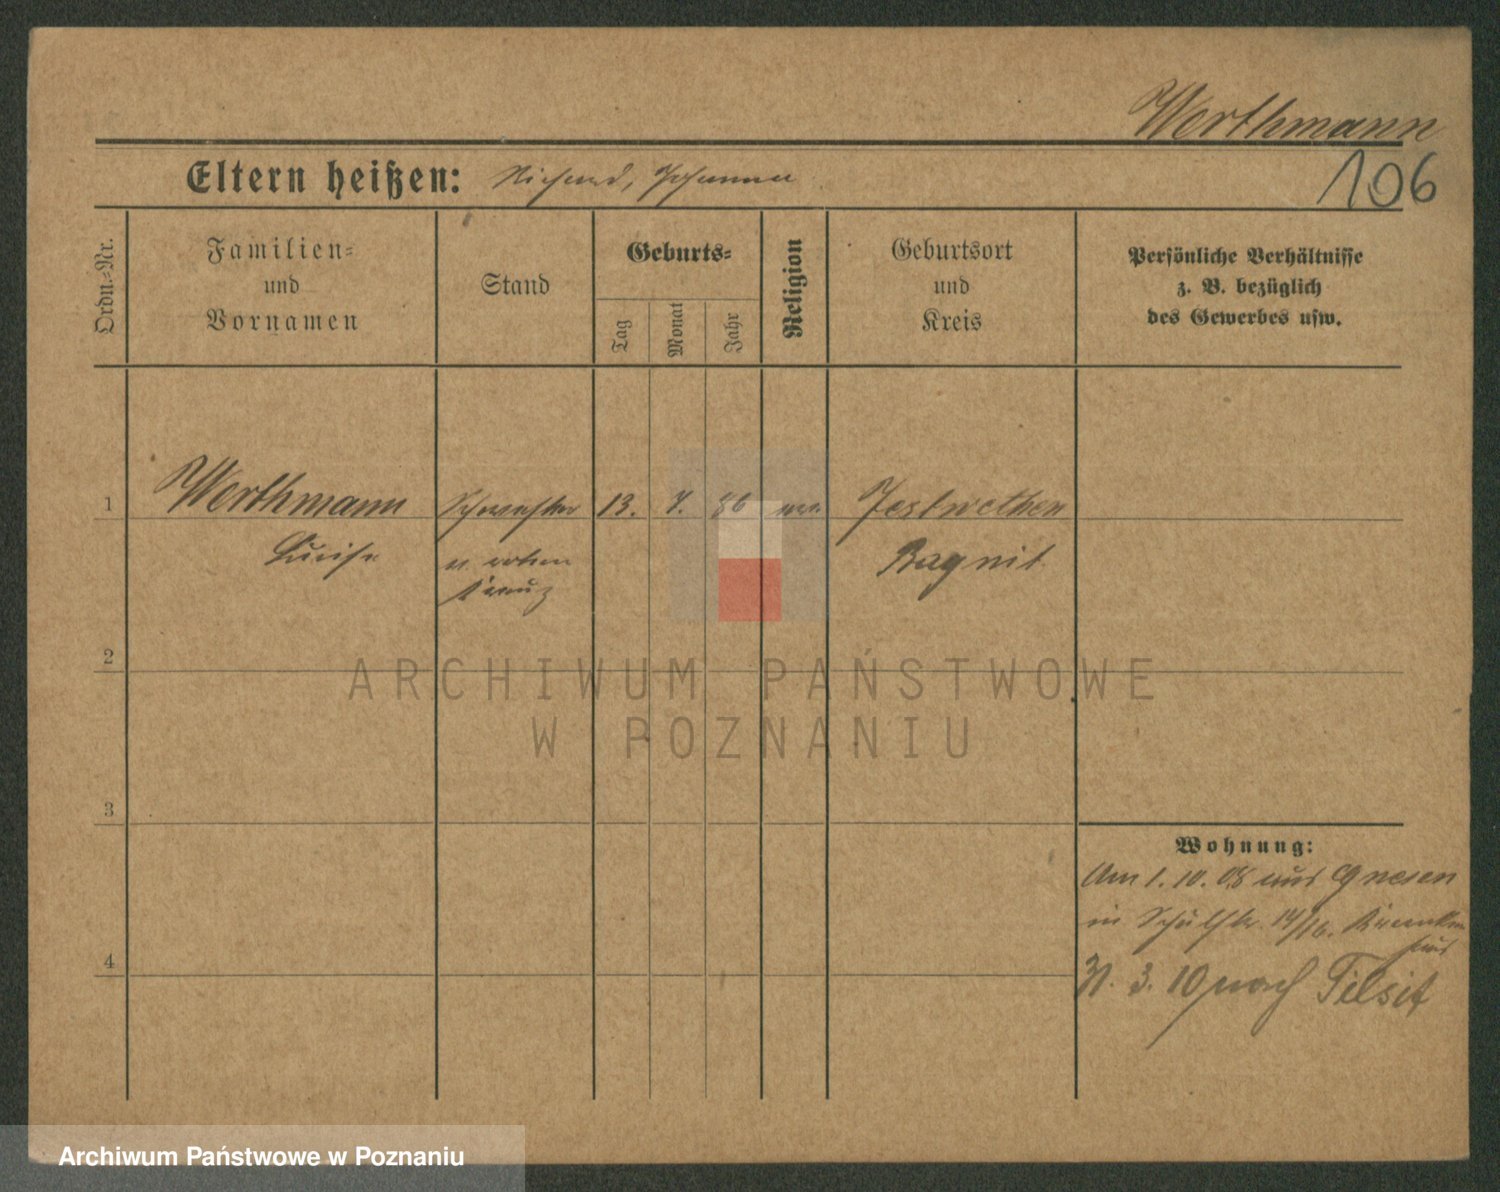 Werthmann
106
Eltern heißen: Richard, Johanna
Ordn.-Nr.
Familien-
und
Vornamen
Stand
Geburts-
Tag
Monat
Jahr
Religion
Geburtsort
und
Kreis
Persönliche Verhältnisse
z. B. bezüglich
des Gewerbes usw.
1 Werthmann Schwester 13. 7. 86 Jestwethen
Luise v. roten Ragnit
Kreuz
2
ARCHIWUM PAŃSTWOWE
W POZNANIU
3
Wohnung:
Am 1. 10. 08 aus Gnesen
in Schulstr. 14/16. Kranken
haus
4
31. 3. 10 nach Tilsit
Archiwum Państwowe w Poznaniu